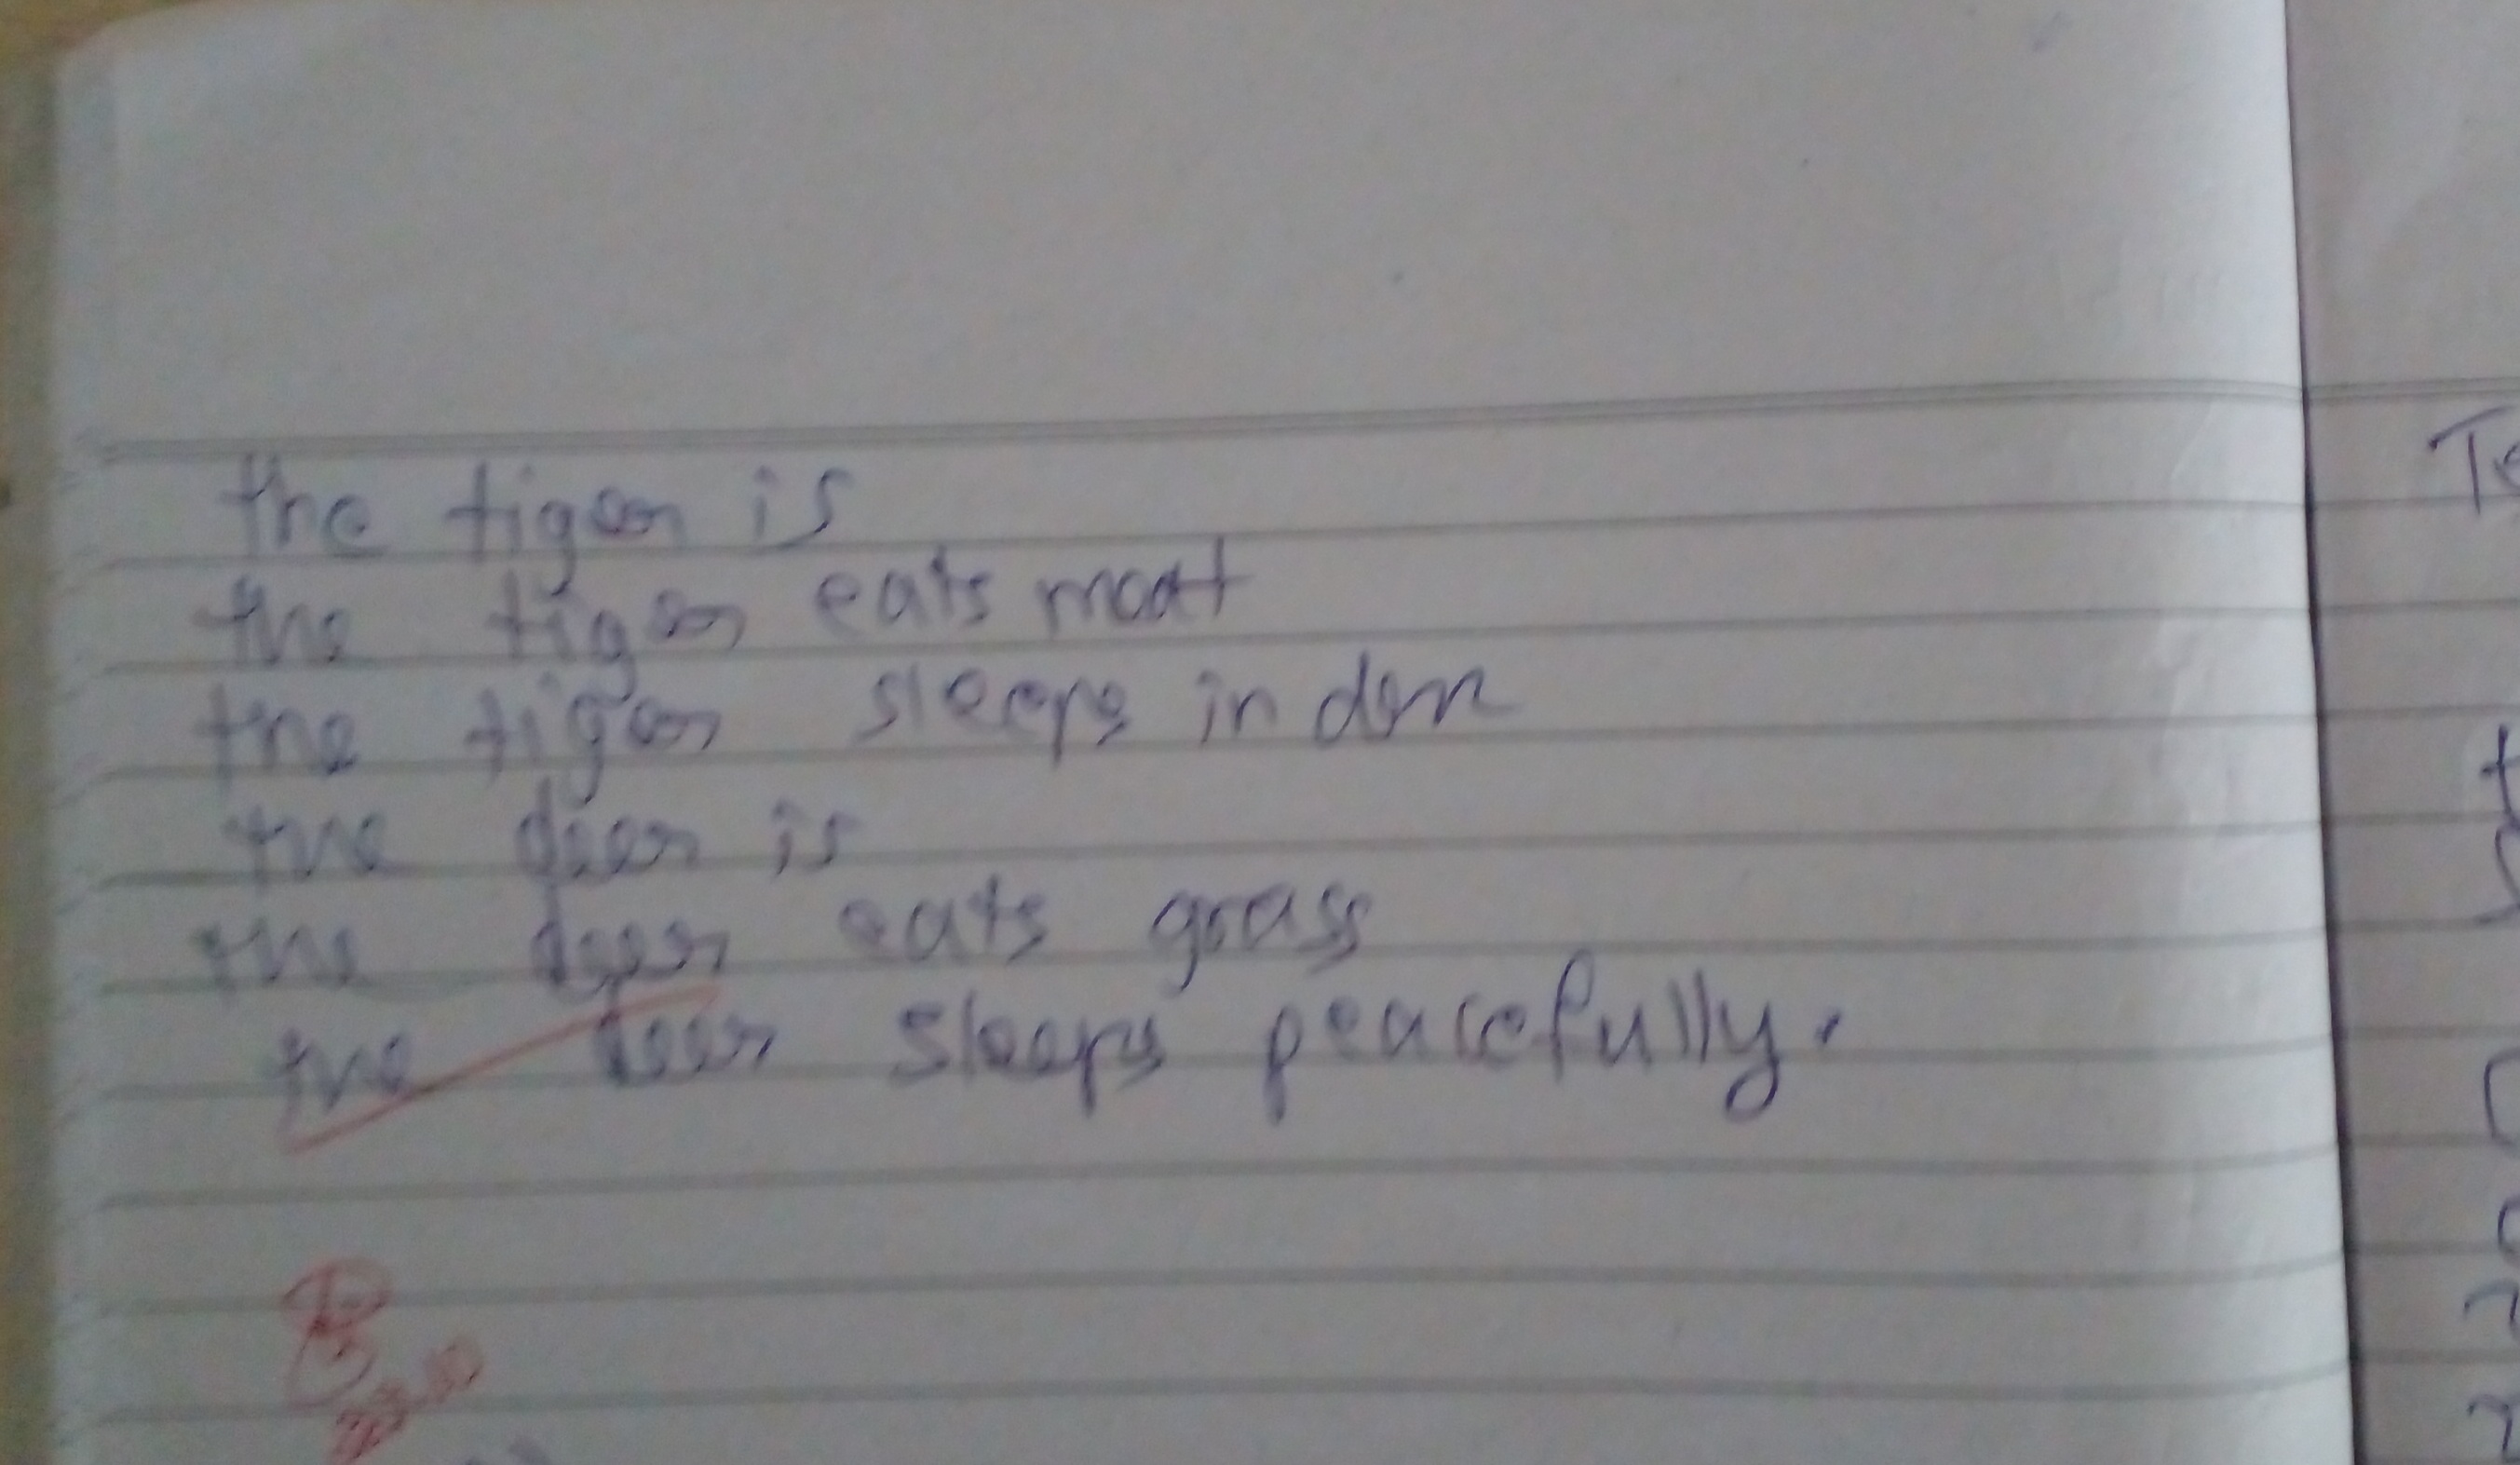 the tiger is
the tiger eats meat
the tiger sleeps in den
the deer is
the deer eats grass
the deer sleeps peacefully.